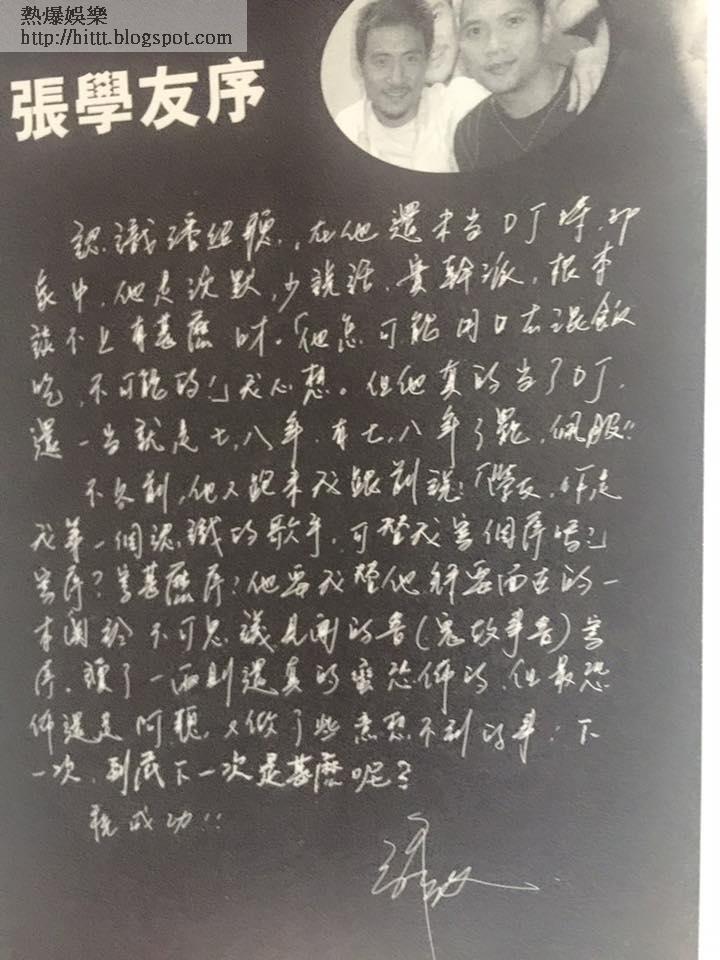 熱爆娛樂
http://hittt.blogspot.com
張學友序
認識潘紹聰,在他還未当DJ時,印
象中,他是沈默,少說話,實幹派,根本
談不上有甚麼口才。「他怎可能用口去混飯
吃,不可能的!」我心想。但他真的当了DJ,
還一当就是七、八年,有七、八年了罷,佩服!!
不久前,他又跑来我跟前說:「學友,你是
我第一個認識的歌手,可替我寫個序嗎?」
寫序?寫甚麼序?他要我替他將要面世的一
本関於不可思議見聞的書(鬼故事書)寫
序,讀了一兩則還真的蠻恐怖的,但最恐
怖還是阿聰,又做了些意想不到的事,下
一次,到底下一次是甚麼呢?
祝成功!!